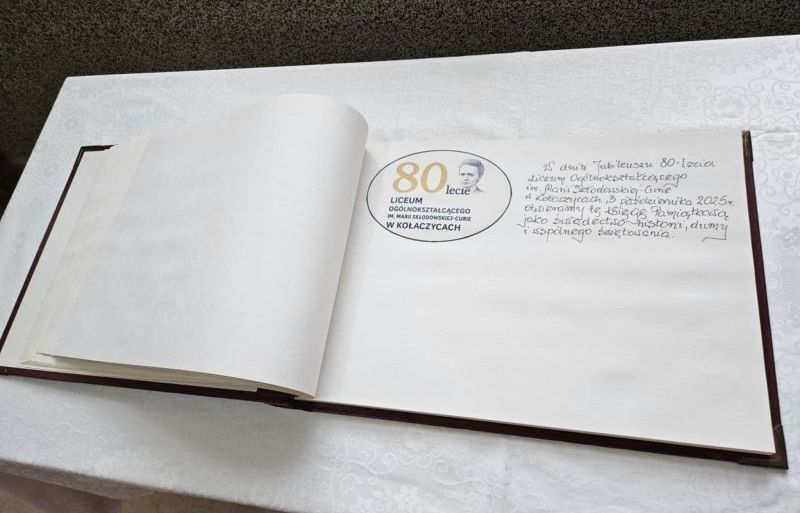 80 lecie
LICEUM
OGÓLNOKSZTAŁCĄCEGO
IM. MARII SKŁODOWSKIEJ-CURIE
W KOŁACZYCACH
W dniu Jubileuszu 80-lecia
Liceum Ogólnokształcącego
im. Marii Skłodowskiej-Curie
w Kołaczycach, 3 października 2025 r.
otwieramy tę Księgę Pamiątkową
jako świadectwo historii, dumy
i wspólnego świętowania.